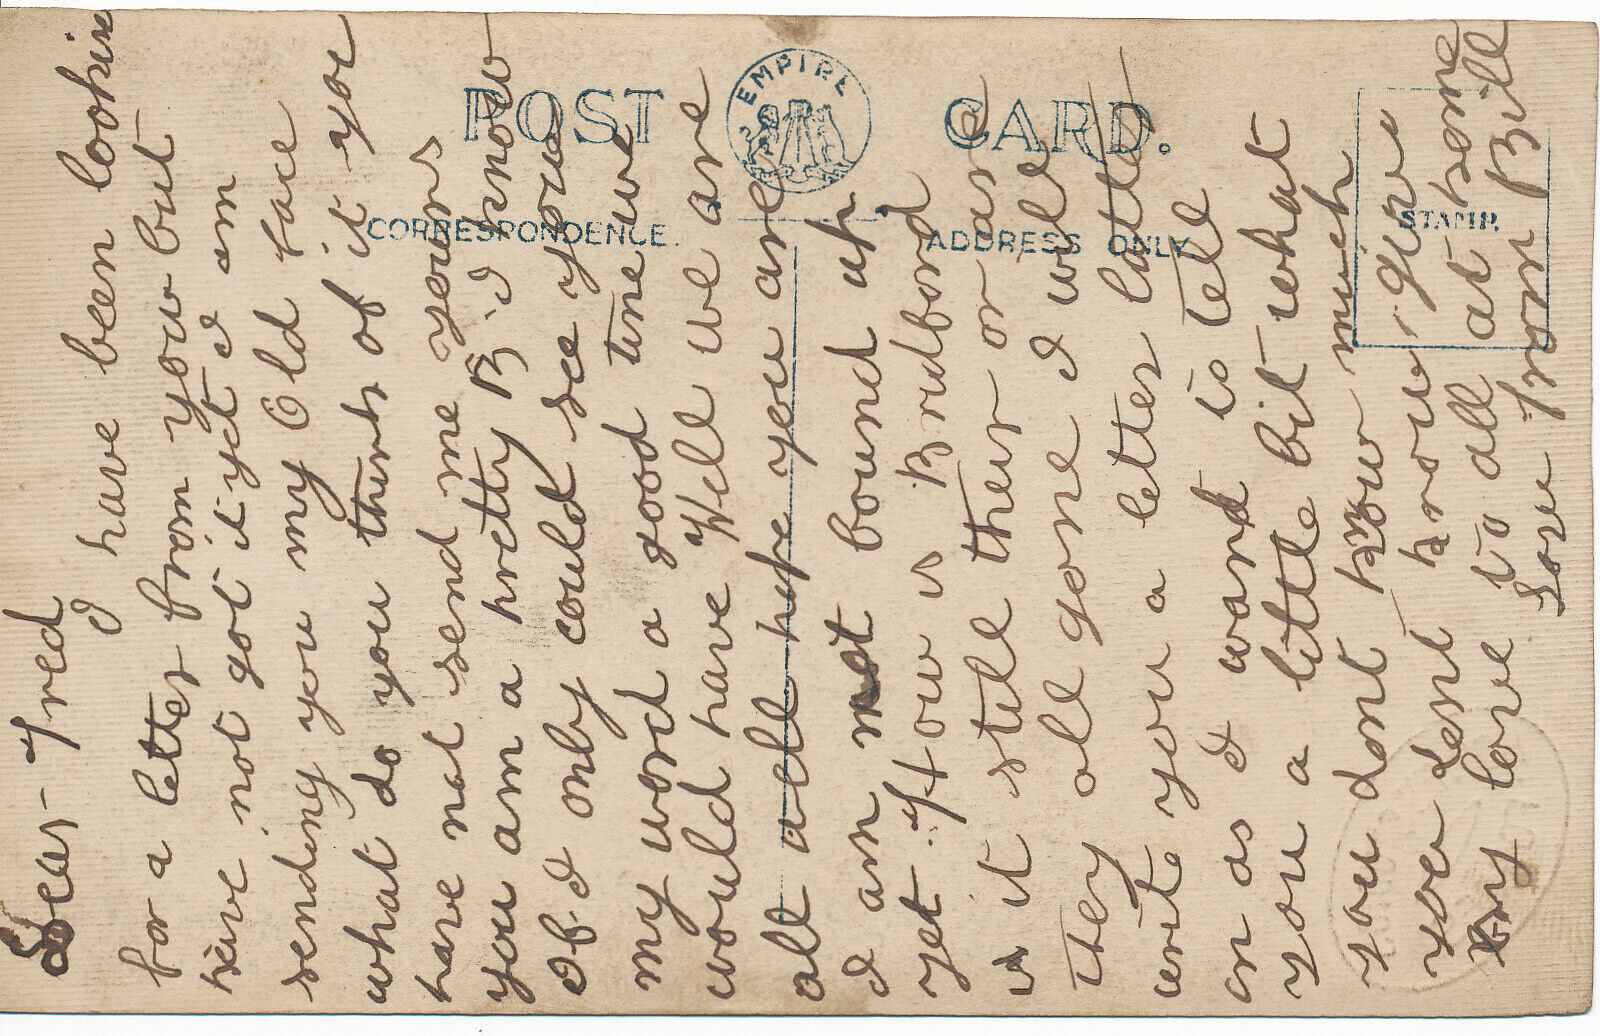 POST CARD.
EMPIRE
CORRESPONDENCE.
ADDRESS ONLY
STAMP.
Dear Fred
I have been lookin
for a letter from you but
have not got it yet I am
sending you my Old face
what do you think of it you
have not send me yours
you am a pretty B I know
If I only could see you
my word a good time we
would have Well we are
all well hope you are
I am not bound up
yet How is Bridford
is it still ther or are
they all gone I will
write you a letter latter
on as I want to tell
you a little bit what
you dont know much
you dont know Give
my love to all at home
Love from Bill